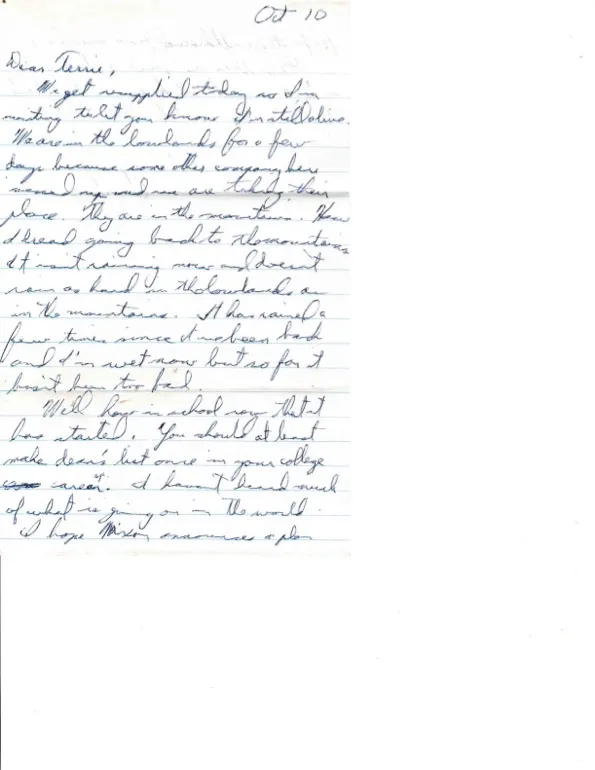 Oct 10
Dear Terrie,
We get resupplied today so I'm
writing to let you know I'm still alive.
We are in the lowlands for a few
days because some other company here
messed up and we are taking their
place. They are in the mountains. How
I dread going back to the mountains
It isn't raining now and doesn't
rain as hard in the lowlands as
in the mountains. It has rained a
few times since I've been back
and I'm wet now but so far it
hasn't been too bad.
Well in school now that it
has started. You should at least
make dean's list once in your college
career. I haven't heard much
of what is going on in the world.
I hope Nixon announces a plan